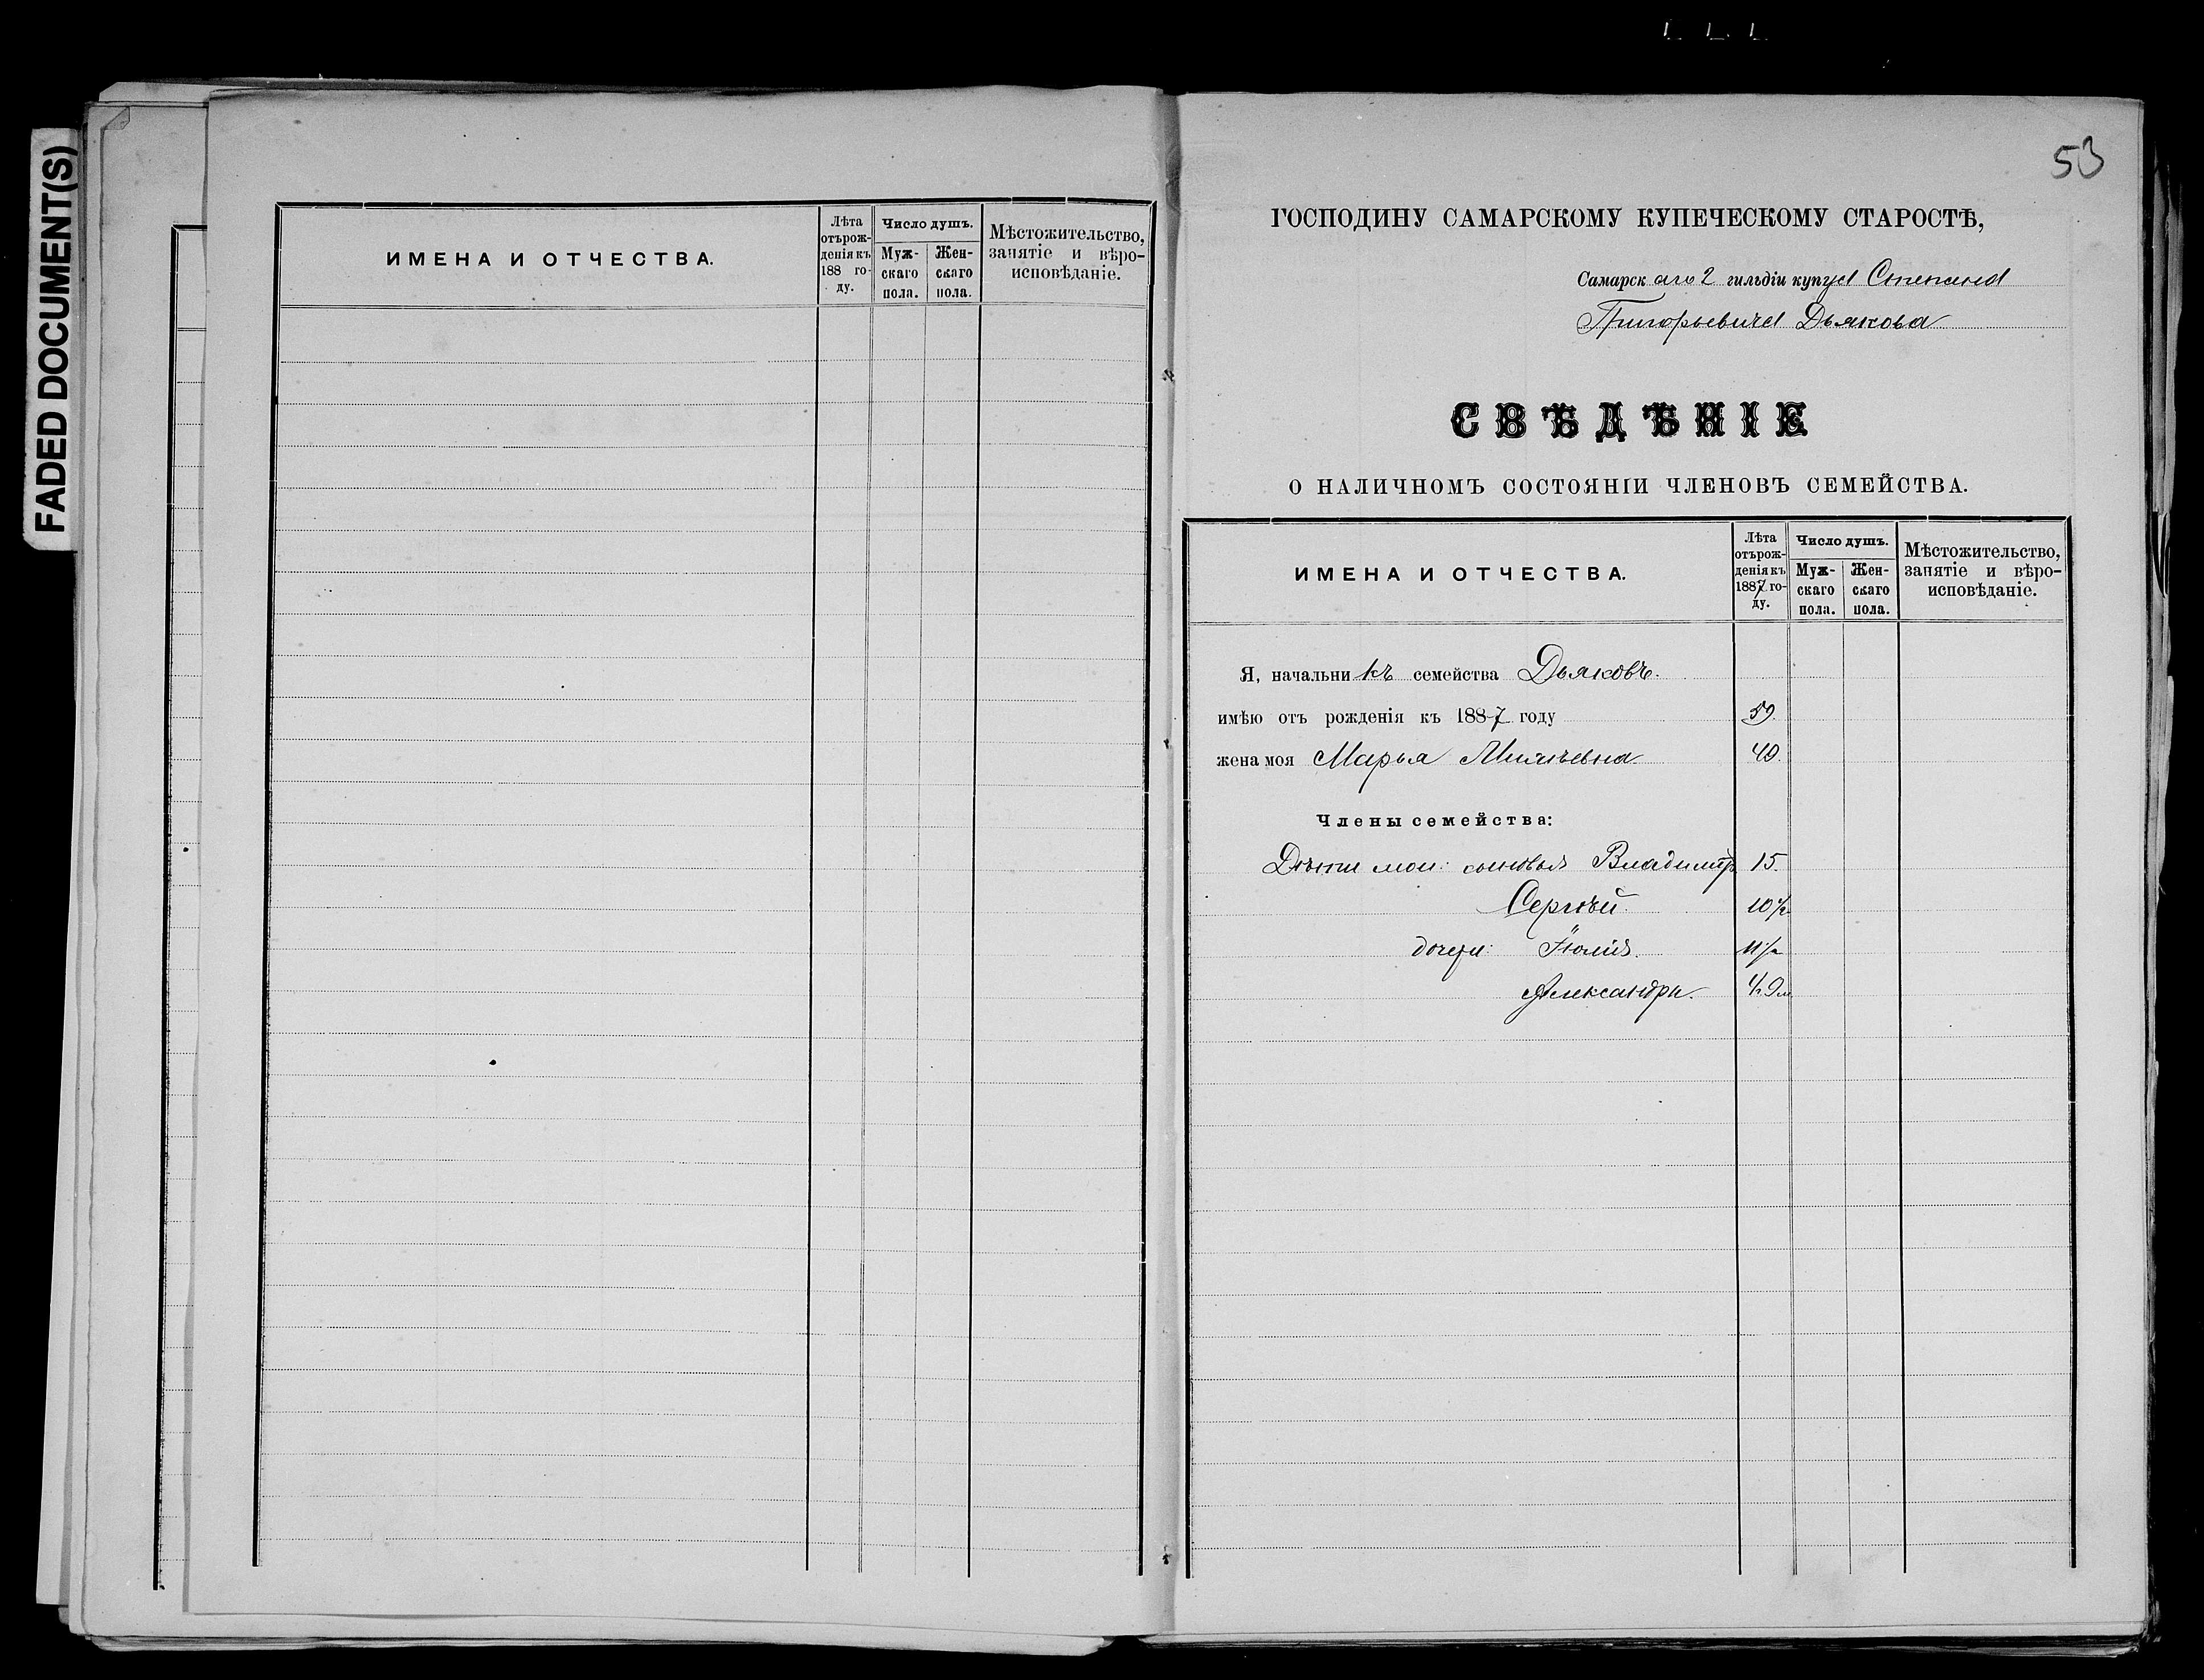 FADED DOCUMENT(S)
ИМЕНА И ОТЧЕСТВА.
Лѣта
отърож-
денія къ
188 го-
ду.
Число душъ.
Муж-
скаго
пола.
Жен-
скаго
пола.
Мѣстожительство,
занятіе и вѣро-
исповѣданіе.
53
ГОСПОДИНУ САМАРСКОМУ КУПЕЧЕСКОМУ СТАРОСТѢ,
Самарскаго 2 гильдіи купца Степана
Григорьевича Дьякова
СВѢДѢНІЕ
О НАЛИЧНОМЪ СОСТОЯНІИ ЧЛЕНОВЪ СЕМЕЙСТВА.
ИМЕНА И ОТЧЕСТВА.
Лѣта
отърож-
денія къ
1887 го-
ду.
Число душъ.
Муж-
скаго
пола.
Жен-
скаго
пола.
Мѣстожительство,
занятіе и вѣро-
исповѣданіе.
Я, начальникъ семейства Дьяковъ.
имѣю отъ рожденія къ 1887 году 59.
жена моя Марья 40.
Члены семейства:
Дѣти мои: сыновья Владиміръ 15.
Сергѣй. 10 1/2
дочери: Юлія. 11 1/2
Александра.